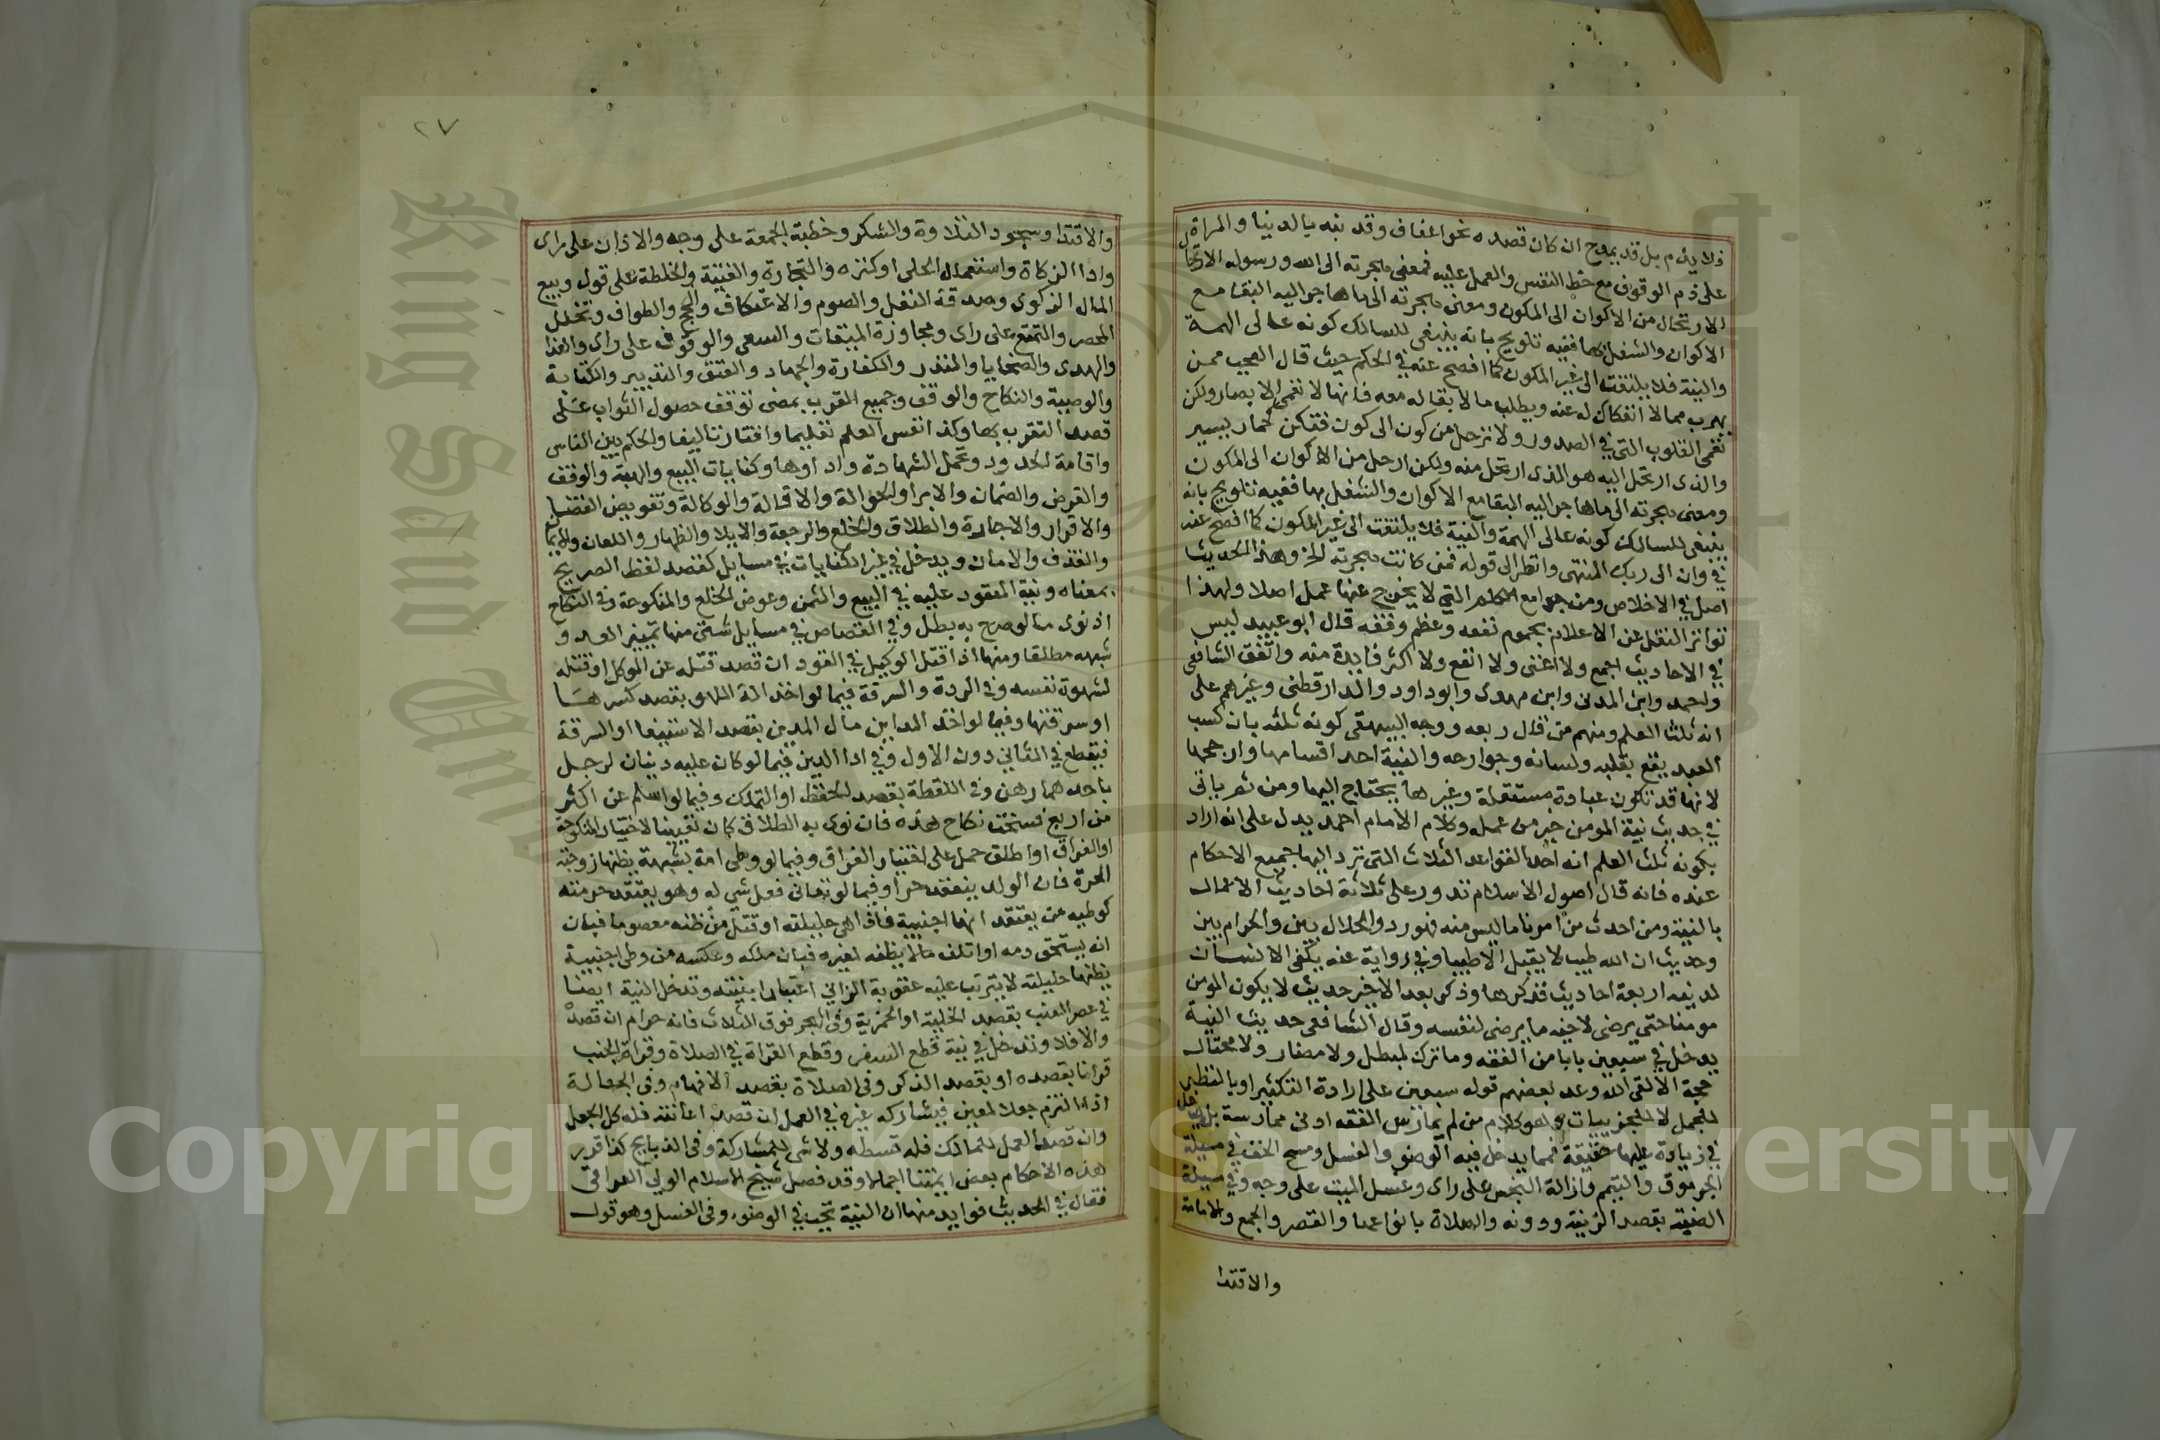 فلا يذم بل قد يمدح ان كان قصده نحو اعفاف وقد نبه بالدنيا والمراة
على ذم الوقوف مع حظ النفس والعمل عليه فمعنى هجرته الى الله ورسوله الارتحال
الارتحال من الاكوان الى المكون ومعنى هجرته الى ما هاجر اليه البقا مع
الاكوان والشغل بها ففيه تلويح بانه ينبغى للسالك كونه عالى الهمة
والنية فلا يلتفت الى غير المكون كما افصح عنه في الحكم حيث قال العجب ممن
يهرب مما لا انفكاك له عنه ويطلب ما لا بقا له معه فانها لا تعمى الابصار ولكن
تعمى القلوب التى في الصدور ولا ترحل من كون الى كون فتكن كحمار يسير
والذى ارتحل اليه هو الذى ارتحل منه ولكن ارحل من الاكوان الى المكون
ومعنى هجرته الى ما هاجر اليه البقا مع الاكوان والشغل بها ففيه تلويح بانه
ينبغى للسالك كونه عالى الهمة والنية فلا يلتفت الى غير المكون كما افصح عنه
في وان الى ربك المنتهى وانظر الى قوله فمن كانت هجرته الخ وهذا الحديث
اصل في الاخلاص ومن جوامع الكلم التى لا يخرج عنها عمل اصلا ولهذا
تواتر النقل عن الاعلام بعموم نفعه وعظم وقعه قال ابو عبيد ليس
في الاحاديث اجمع ولا اغنى ولا انفع ولا اكثر فايدة منه واتفق الشافعى
واحمد وابن المدنى وابن مهدى وابو داود والدارقطنى وغيرهم على
انه ثلث العلم ومنهم من قال ربعه ووجه البيهقى كونه ثلثه بان كسب
العبد يقع بقلبه ولسانه وجوارحه والنية احد اقسامها وارجحها
لانها قد تكون عبادة مستقلة وغيرها يحتاج اليها ومن ثم ياتى
في حديث نية المومن خير من عمله وكلام الامام احمد يدل على انه اراد
بكونه ثلث العلم انه احد القواعد الثلاث التى ترد اليها جميع الاحكام
عنده فانه قال اصول الاسلام تدور على ثلاثة احاديث الاعمال
بالنية ومن احدث من امرنا ما ليس منه فهو رد والحلال بين والحرام بين
وحديث ان الله طيب لا يقبل الا طيبا وفي رواية عنه يكفى الانسان
لدينه اربعة احاديث فذكرها وذكر بعد الاخير حديث لا يكون المومن
مومنا حتى يرضى لاخيه ما يرضى لنفسه وقال الشافعى حديث النية
يدخل في سبعين بابا من الفقه وما ترك لمبطل ولا مضار ولا محتال
حجة الا لقى الله وعد بعضهم قوله سبعين على ارادة التكثير او بالنظر
للجمل لا للجزييات وهو كلام من لم يمارس الفقه ادنى ممارسة بل يدخل
في زيادة عليها حقيقة فمما يدخل فيه الوضو والغسل ومسح الخف في مسيلة
الجرموق والتيمم وازالة النجس على راى وغسل الميت على وجه وفي مسيلة
الضبة بقصد الزينة ودونه والصلاة بانواعها والقصر والجمع والامامة
والاقتدا
٢٧
والاقتدا وسجود التلاوة والشكر وخطبة الجمعة على وجه والاذان على راى
وادا الزكاة واستعمال الحلى او كنزه والتجارة والقنية والخلطة على قول وبيع
المال الزكوى وصدقة النفل والصوم والاعتكاف والحج والطواف وتحلل
المحصر والتمتع على راى ومجاوزة الميقات والسعى والوقوف على راى والفدا
والهدى والضحايا والنذر والكفارة والجهاد والعتق والتدبير والكتابة
والوصية والنكاح والوقف وجميع القرب بمعنى توقف حصول الثواب على
قصد التقرب بها وكذا نفس العلم تعليما وافتا وتاليفا والحكم بين الناس
واقامة الحدود وتحمل الشهادة واداوها وكنايات البيع والهبة والوقف
والقرض والضمان والابرا والحوالة والاقالة والوكالة وتفويض القضا
والاقرار والاجارة والطلاق والخلع والرجعة والايلا والظهار واللعان والايمان
والقذف والامان ويدخل في غير الكنايات في مسايل كقصد لفظ الصريح
بمعناه ونية المعقود عليه في البيع والثمن وعوض الخلع والمنكوحة وفى النكاح
اذ نوى ما لو صرح به بطل وفي القصاص في مسايل شتى منها تمييز العمد و
شبهه مطلقا ومنها اذا قتل الوكيل في القود ان قصد قتله عن الموكل او قتله
لشهوة نفسه وفي الردة والسرقة فيما لو اخذ الة اللهو بقصد كسرها
او سرقتها وفيما لو اخذ الداين مال المدين بقصد الاستيفا او السرقة
فيقطع في الثانى دون الاول وفي ادا الدين فيما لو كان عليه دينان لرجل
باحدهما رهن وفي اللقطة بقصد الحفظ او التملك وفيما لو اسلم عن اكثر
من اربع فسخت نكاح هذه فان نوى به الطلاق كان تعيينا لاختيار المنكوحة
او الفراق او اطلق حمل على اختيار الفراق وفيما لو وطى امة بشبهة يظنها زوجته
الحرة فان الولد ينعقد حرا وفيما لو تعاطى فعل شى له وهو يعتقد حرمته
كوطيه من يعتقد انها اجنبية فاذا هى حليلته او قتل من ظنه معصوما فبان
انه يستحق دمه او اتلف مالا يظنه لغيره فبان ملكه وعكسه من وطى اجنبية
يظنها حليلته لا يترتب عليه عقوبة الزانى اعتبارا بنيته وتدخل النية ايضا
في عصر العنب بقصد الخلية او الخمرية وفي الهجر فوق الثلاث فانه حرام ان قصده
والا فلا وتدخل في نية قطع السفر وقطع القراة في الصلاة وقراة الجنب
قرانا بقصده او بقصد الذكر وفى الصلاة بقصد الافهام وفى الجعالة
اذا التزم جعلا لمعين فيشاركه غيره في العمل ان قصد اعانته فله كل الجعل
وان قصد العمل للمالك فله قسطه ولا شى للمشاركة وفى الذبايح كذا قرر
هذه الاحكام بعض ايمتنا اجمالا وقد فصل شيخ الاسلام الولى العراقى
فقال في الحديث فوايد منها ان النية تجب في الوضوء وفى الغسل وهو قول
Copyright © King Saud University